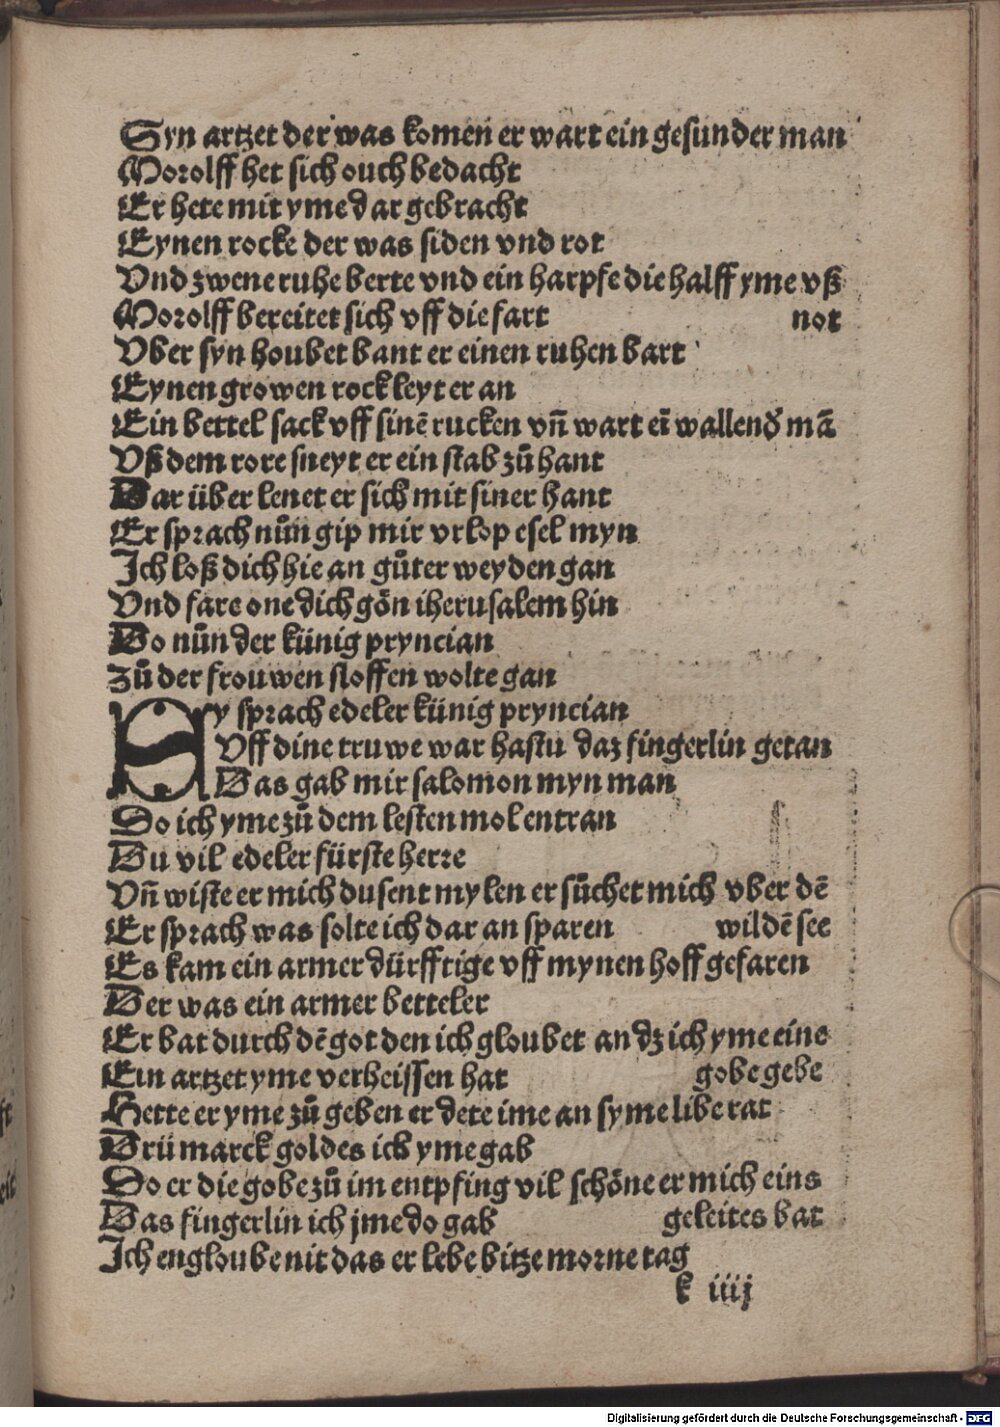 Syn artzet der was komen er wart ein gesunder man
Morolff het sich ouch bedacht
Er hete mit yme dar gebracht
Eynen rocke der was siden vnd rot
Vnd zwene ruhe berte vnd ein harpfe die halff yme vß
Morolff bereitet sich vff die fart not
Vber syn houbet bant er einen ruhen bart
Eynen growen rock leyt er an
Ein bettel sack vff sinē rucken vn̄ wart eī wallend' mā
Vß dem rore sneyt er ein stab zů hant
Dar über lenet er sich mit siner hant
Er sprach nůn gip mir vrlop esel myn
Ich loß dich hie an gůter weyden gan
Vnd fare one dich gön iherusalem hin
Do nůn der künig pryncian
Zů der frouwen sloffen wolte gan
Sy sprach edeler künig pryncian
Vff dine truwe war hastu daz fingerlin getan
Das gab mir salomon myn man
Do ich yme zů dem lesten mol entran
Du vil edeler fürste herre
Vn̄ wiste er mich dusent mylen er sůchet mich vber dē
Er sprach was solte ich dar an sparen wildē see
Es kam ein armer dürfftige vff mynen hoff gefaren
Der was ein armer betteler
Er bat durch dē got den ich gloubet an dz ich yme eine
Ein artzet yme verheissen hat gobe gebe
Hette er yme zů geben er dete ime an syme libe rat
Drü marck goldes ich yme gab
Do er die gobe zů im entpfing vil schöne er mich eins
Das fingerlin ich jme do gab geleites bat
Ich engloube nit das er lebe bitze morne tag
k iiij
Digitalisierung gefördert durch die Deutsche Forschungsgemeinschaft - DFG